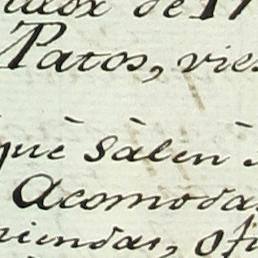 de 17
Patos, vie
què sàlen
Acomoda
iendas, ofi